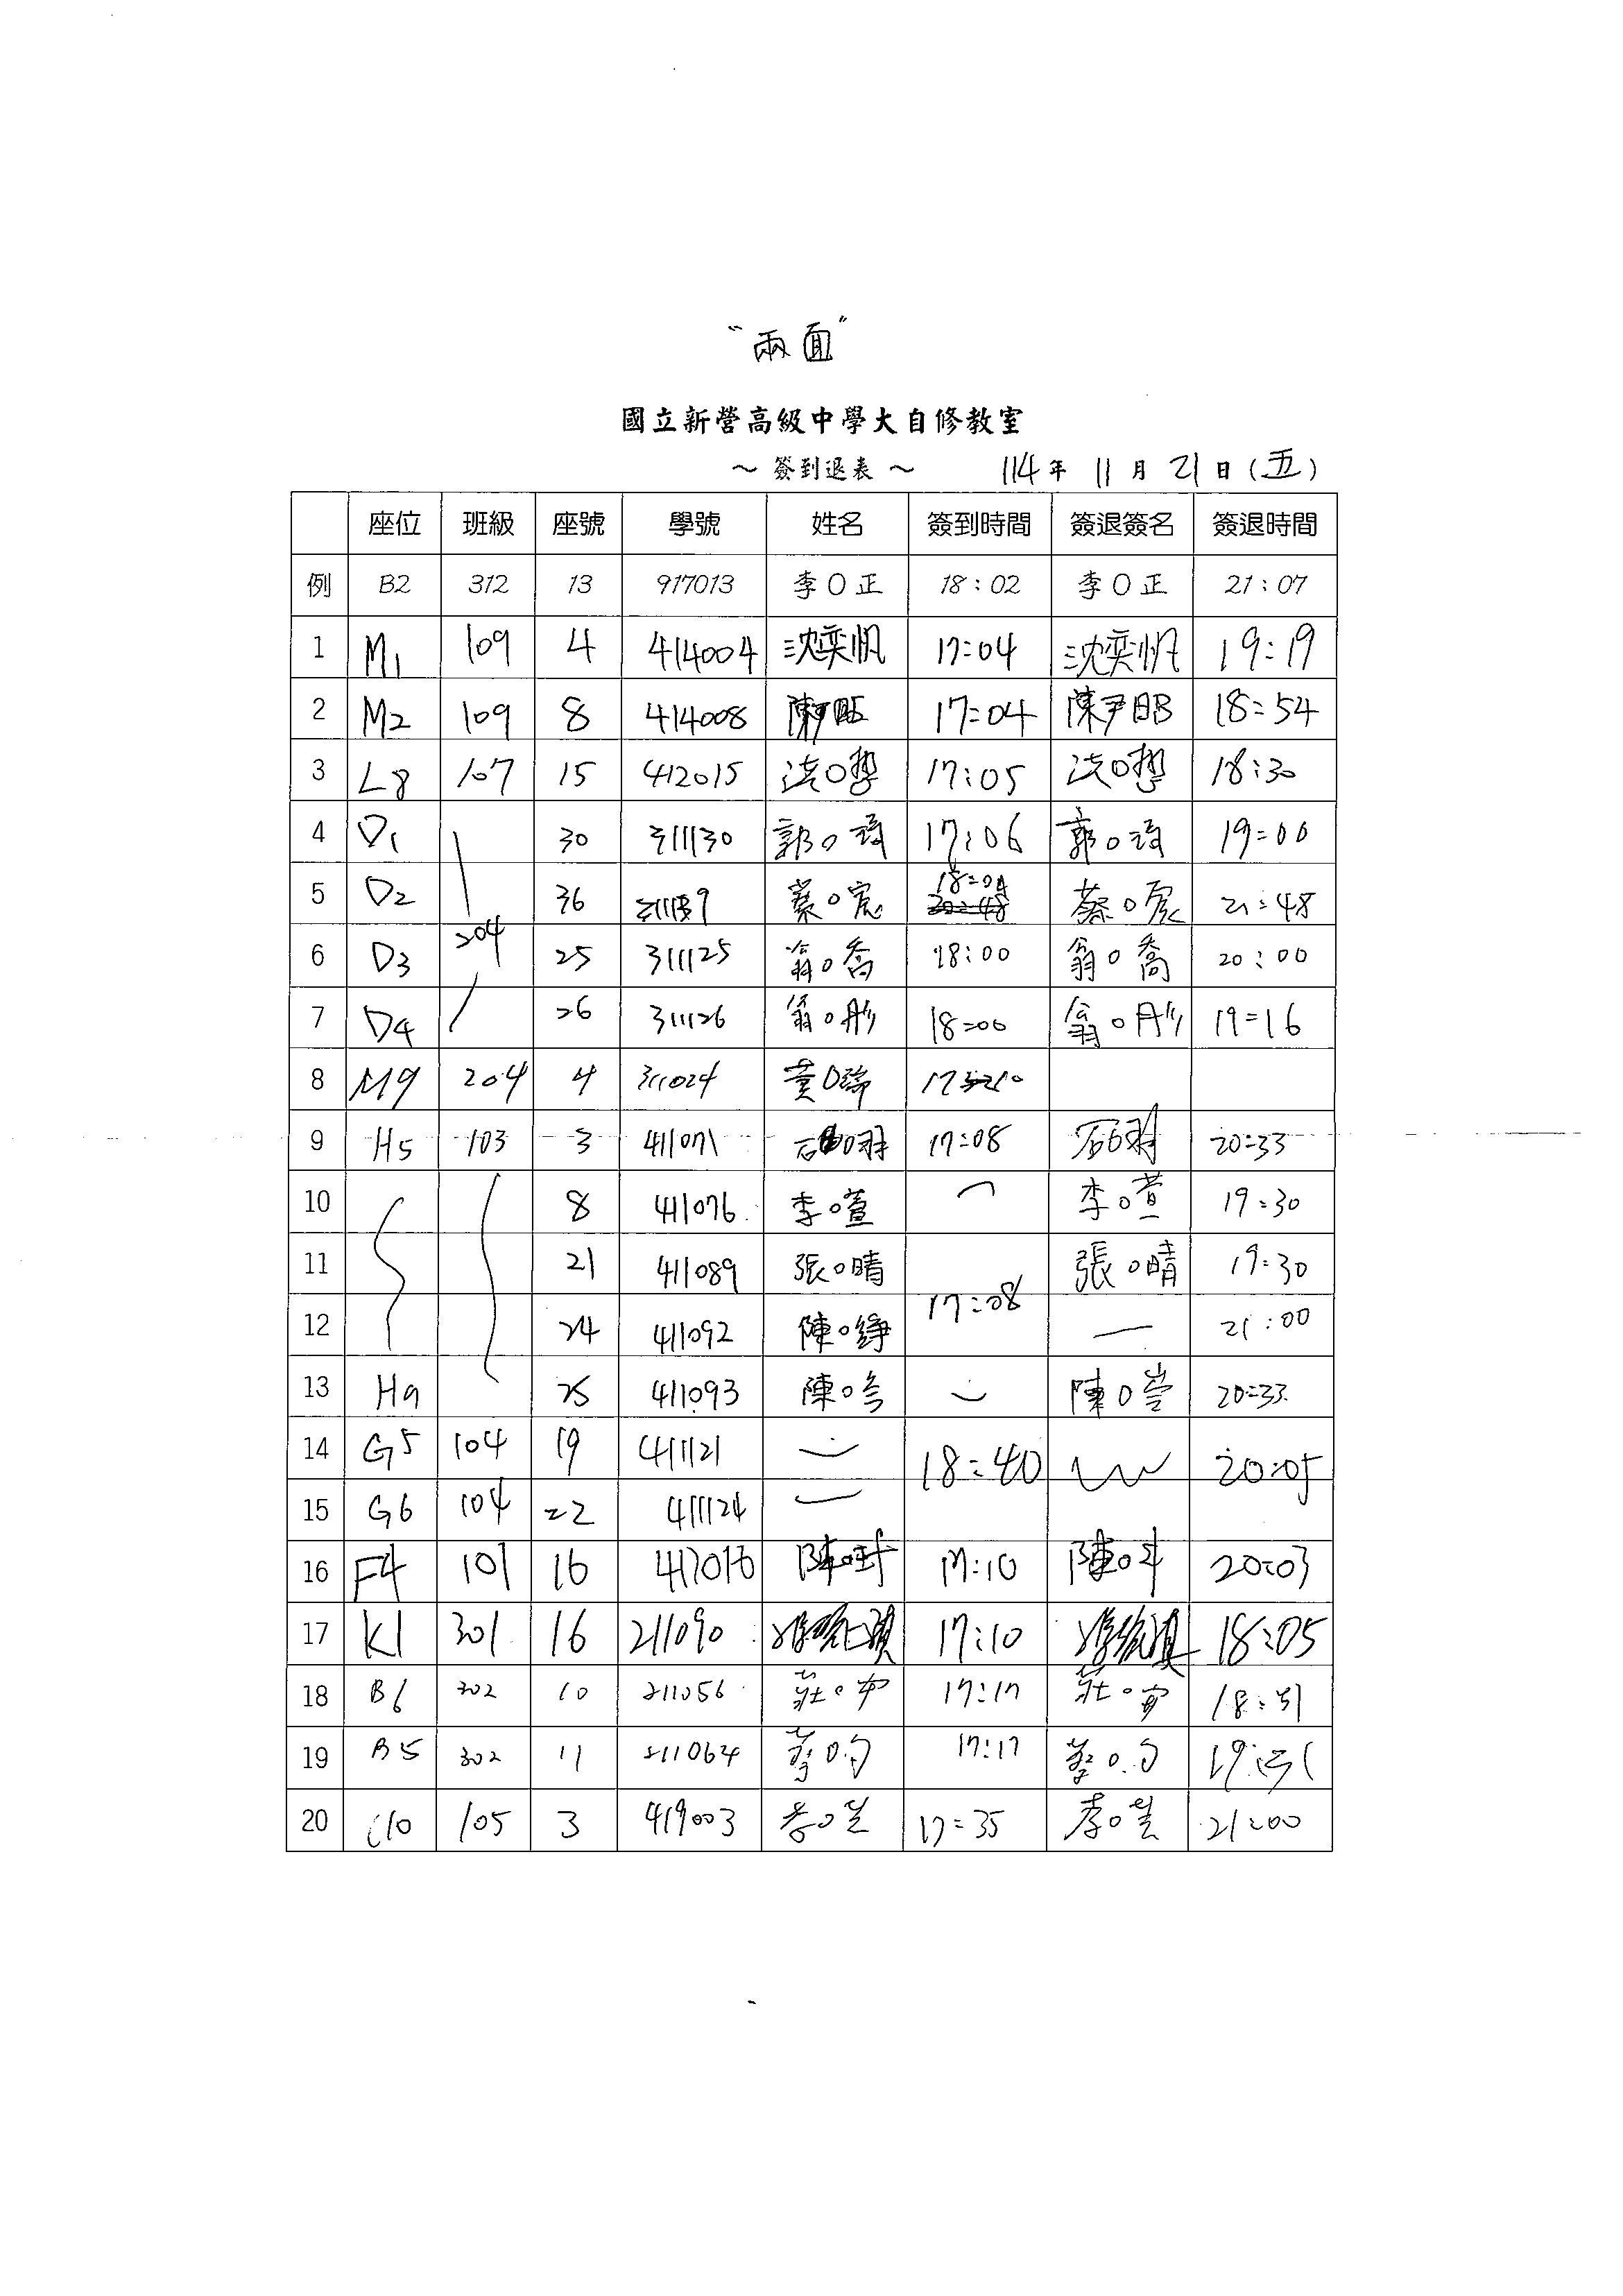 "兩面"
國立新營高級中學大自修教室
～簽到退表～ 114年 11月 21日(五)
座位 班級 座號 學號 姓名 簽到時間 簽退簽名 簽退時間
例 B2 312 13 917013 李○正 18:02 李○正 21:07
1 M1 109 4 414004 沈奕帆 17:04 沈奕帆 19:19
2 M2 109 8 414008 陳尹昭 17:04 陳尹昭 18:54
3 L8 107 15 412015 洪○哲 17:05 洪○哲 18:30
4 D1 30 311130 郭○ 17:06 郭○ 19:00
5 D2 36 蔡○宸 18:04 蔡○宸 21:48
6 D3 204 25 311125 翁○喬 18:00 翁○喬 20:00
7 D4 26 311126 翁○彤 18:00 翁○彤 19:16
8 M9 204 4 311024 黃○ 17
9 H5 103 3 411071 石○羽 17:08 石 羽 20:33
10 8 411076 李○萱 李○萱 19:30
11 21 411089 張○晴 17:08 張○晴 19:30
12 24 411092 陳○錚 21:00
13 H9 25 411093 陳○ 陳○ 20:33
14 G5 104 19 411121 18:40 20:05
15 G6 104 22 411124
16 F4 101 16 417016 陳 17:10 陳○ 20:03
17 K1 301 16 211090 17:10 18:05
18 B6 302 10 211056 莊○ 17:17 莊○ 18:51
19 B5 302 11 211064 17:17 19:51
20 C10 105 3 419003 李○ 17:35 李○ 21:00